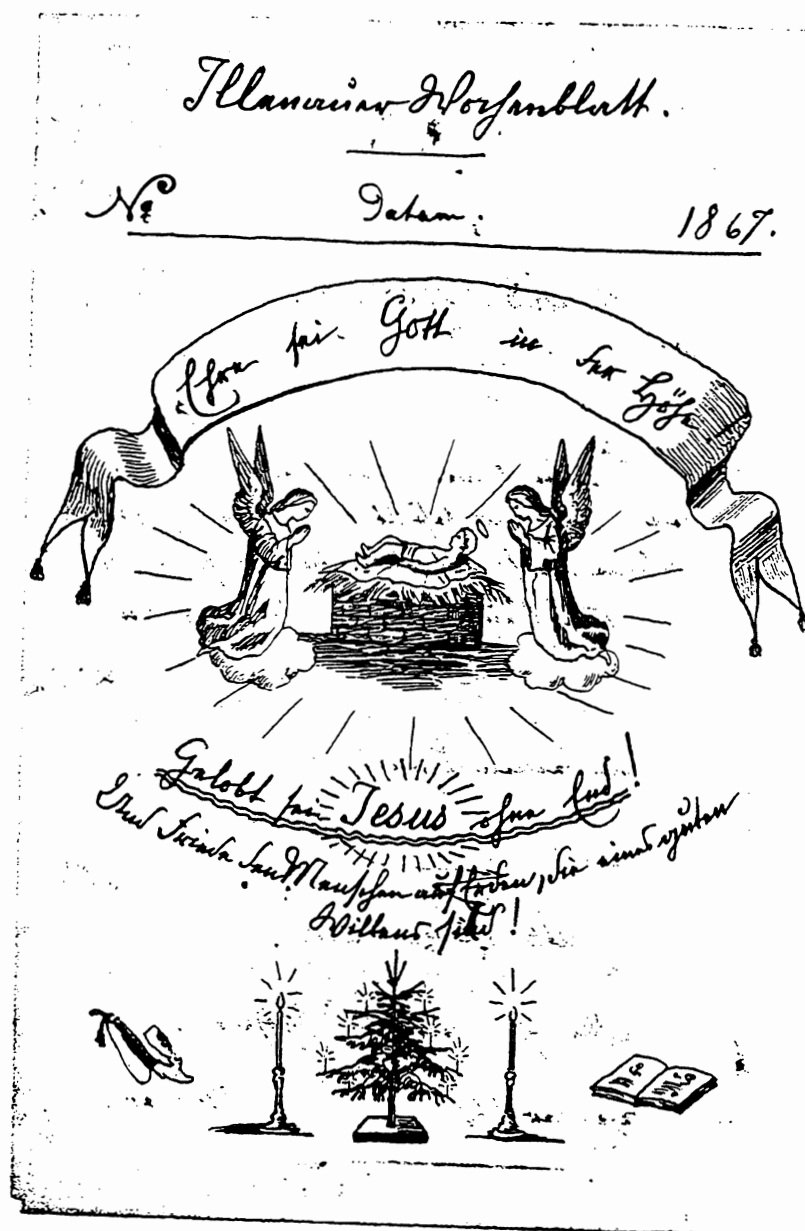 Illenauer Wochenblatt.
No Datum: 1867.
Ehre sei Gott in der Höhe
Gelobt sei Jesus ohne End!
Und Friede den Menschen auf Erden, die eines guten
Willens sind!